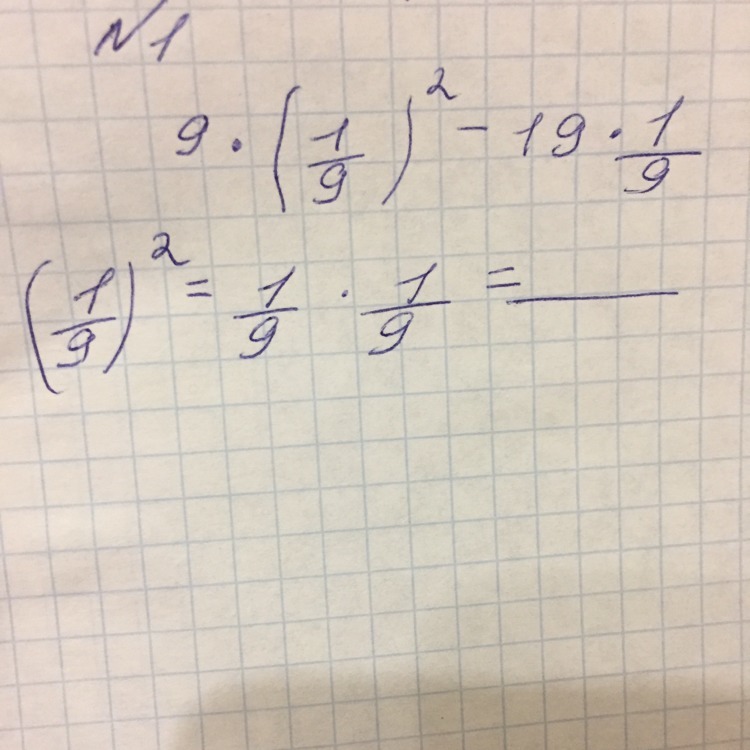 №1
9 · (1/9)² - 19 · 1/9
(1/9)² = 1/9 · 1/9 = ___